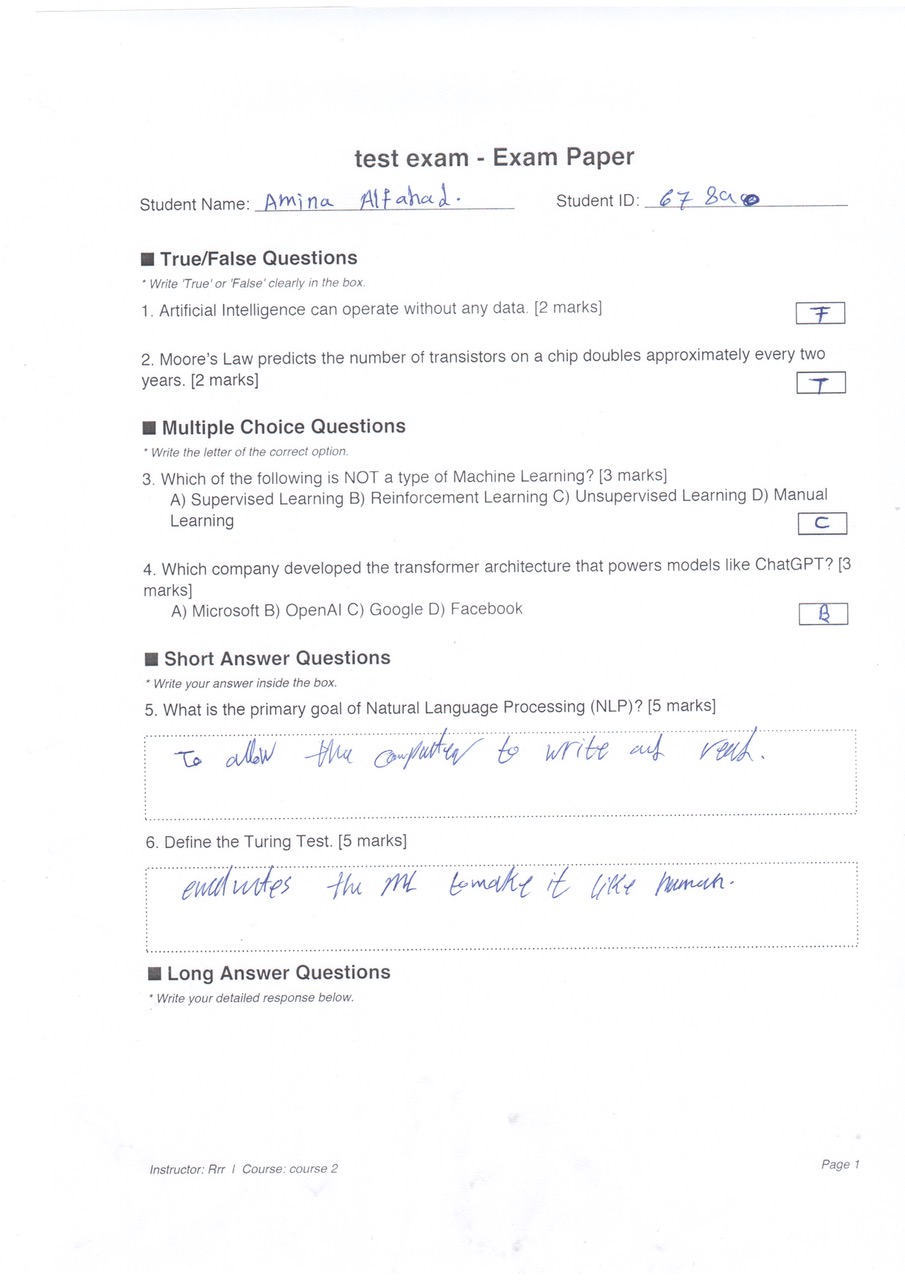 test exam - Exam Paper
Student Name: Amina Alfahad.
Student ID: 67 89
■ True/False Questions
* Write 'True' or 'False' clearly in the box.
1. Artificial Intelligence can operate without any data. [2 marks]
F
2. Moore's Law predicts the number of transistors on a chip doubles approximately every two
years. [2 marks]
T
■ Multiple Choice Questions
* Write the letter of the correct option.
3. Which of the following is NOT a type of Machine Learning? [3 marks]
A) Supervised Learning B) Reinforcement Learning C) Unsupervised Learning D) Manual
Learning
C
4. Which company developed the transformer architecture that powers models like ChatGPT? [3
marks]
A) Microsoft B) OpenAI C) Google D) Facebook
B
■ Short Answer Questions
* Write your answer inside the box.
5. What is the primary goal of Natural Language Processing (NLP)? [5 marks]
To allow the to write and read.
6. Define the Turing Test. [5 marks]
the ML to make it like human.
■ Long Answer Questions
* Write your detailed response below.
Instructor: Rrr | Course: course 2
Page 1